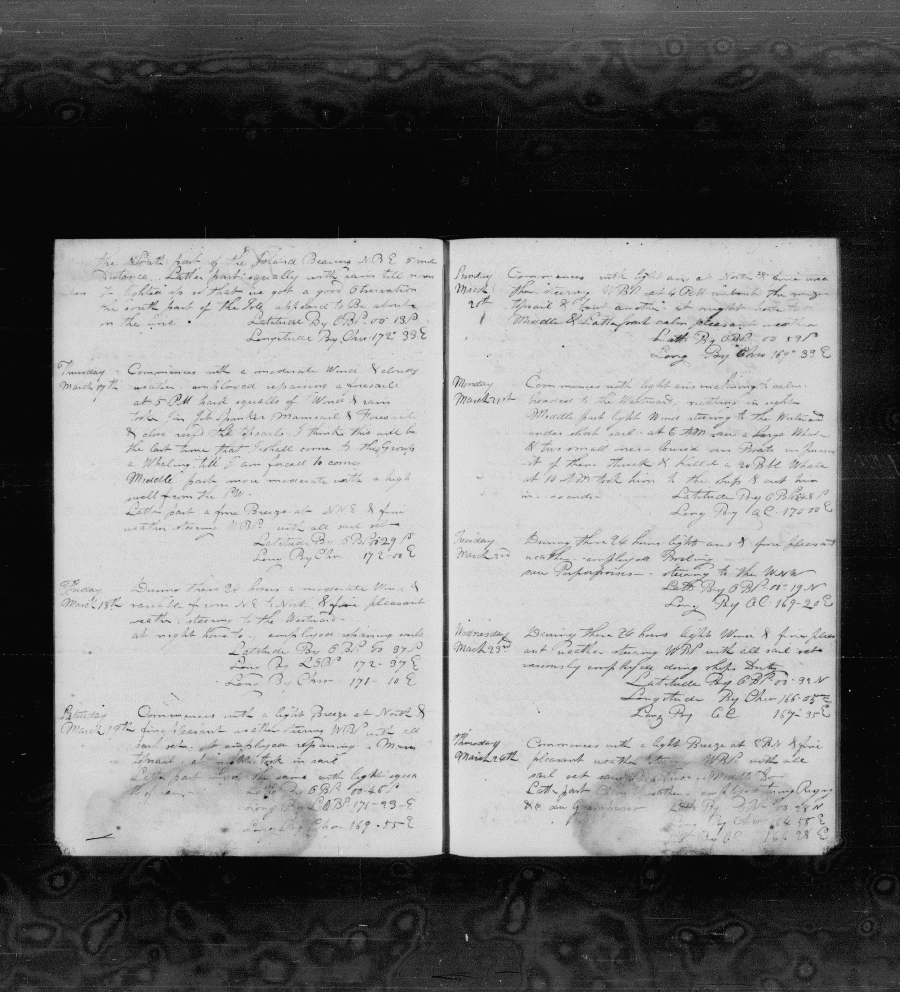 the North part of the Island Bearing N.B.E. 5 mile
Distance. Latter part squally with rain till noon
when it lighted up so that we got a good observation
the south part of the Isle appeard to Be about
on the Line. Latitude By OBS. 00.13 S
Longitude By Chro 172° 33 E
Thursday Commences with a moderate Wind & cloudy
March 17th weather employed repairing a foresail
at 5 PM hard squalls of Wind & rain
took in Jib Spanker Mainsail & Foresail
& close reef'd the topsails. I think this will be
the last time that I shall come to the Groups
a Whaling till I am forced to come
Middle part more moderate with a high
swell from the
Latter part a fine Breeze at NNE & fine
weather steering WBS with all sail set
Latitude By OBS 29 S
Lon By Chro 172-00 E
Friday During these 24 hours a moderate Wind &
March 18th variable from NE to North & fine pleasant
weather. steering to the Westward
at night hove to., employed repairing sails
Latitude By OBS 37 S
Lon By 172-37 E
Lon By Chro 171-10 E
Saturday Commences with a light Breeze at North &
March 19th fine pleasant weather steering WBS with all
sail set. employed repairing a Main
topsail. at night took in sail
Latter part the same with light squa
lls of rain Latt By OBS 00-45 S
Long By 171-23-E
Long By Chro 169.55 E
Sunday Commences with light airs at North
March then steering WBS at 4 PM unbent the mizen
20th topsail & bent another. at night hove too
Middle & Latter part calm pleasant weather
Latt By OBS 00 59 S
Long By Chro 169° 39 E
Monday Commences with light airs inclining to calm
March 21st headed to the Westward, nothing in sight
Middle part light Wind steering to the Westward
under short sail. at 6 AM saw a large Whale
& two small ones. Lowerd our Boats in pursuit
of them struck & killed a 20 Bbl Whale
at 10 AM took him to the ship & cut him
in. Latitude By OBS 48 S
Long By OC. 170 00 E
Tuesday During these 24 hours light airs & fine pleasant
March 22d weather. employed Boiling
saw Porpoises. steering to the WNW
Latt By OBS. 00°-19 N
Long By OC. 169-20 E
Wednesday During these 24 hours light Wind & fine pleas
March 23d ant weather steering WBS with all sail set
variously employed doing ships Duty
Latitude By OBS 00-32 N
Longitude By Chro 166-05 E
Long By OC 169-35 E
Thursday Commences with a light Breeze at EBN & fine
March 24th pleasant weather steering WBS with all
sail set saw Middle Do
Latter part weather. employed tarring Riging
&c saw Grampuses Latt By OBS 28 N
Long By Chro 164 55 E
Long By OC 28 E